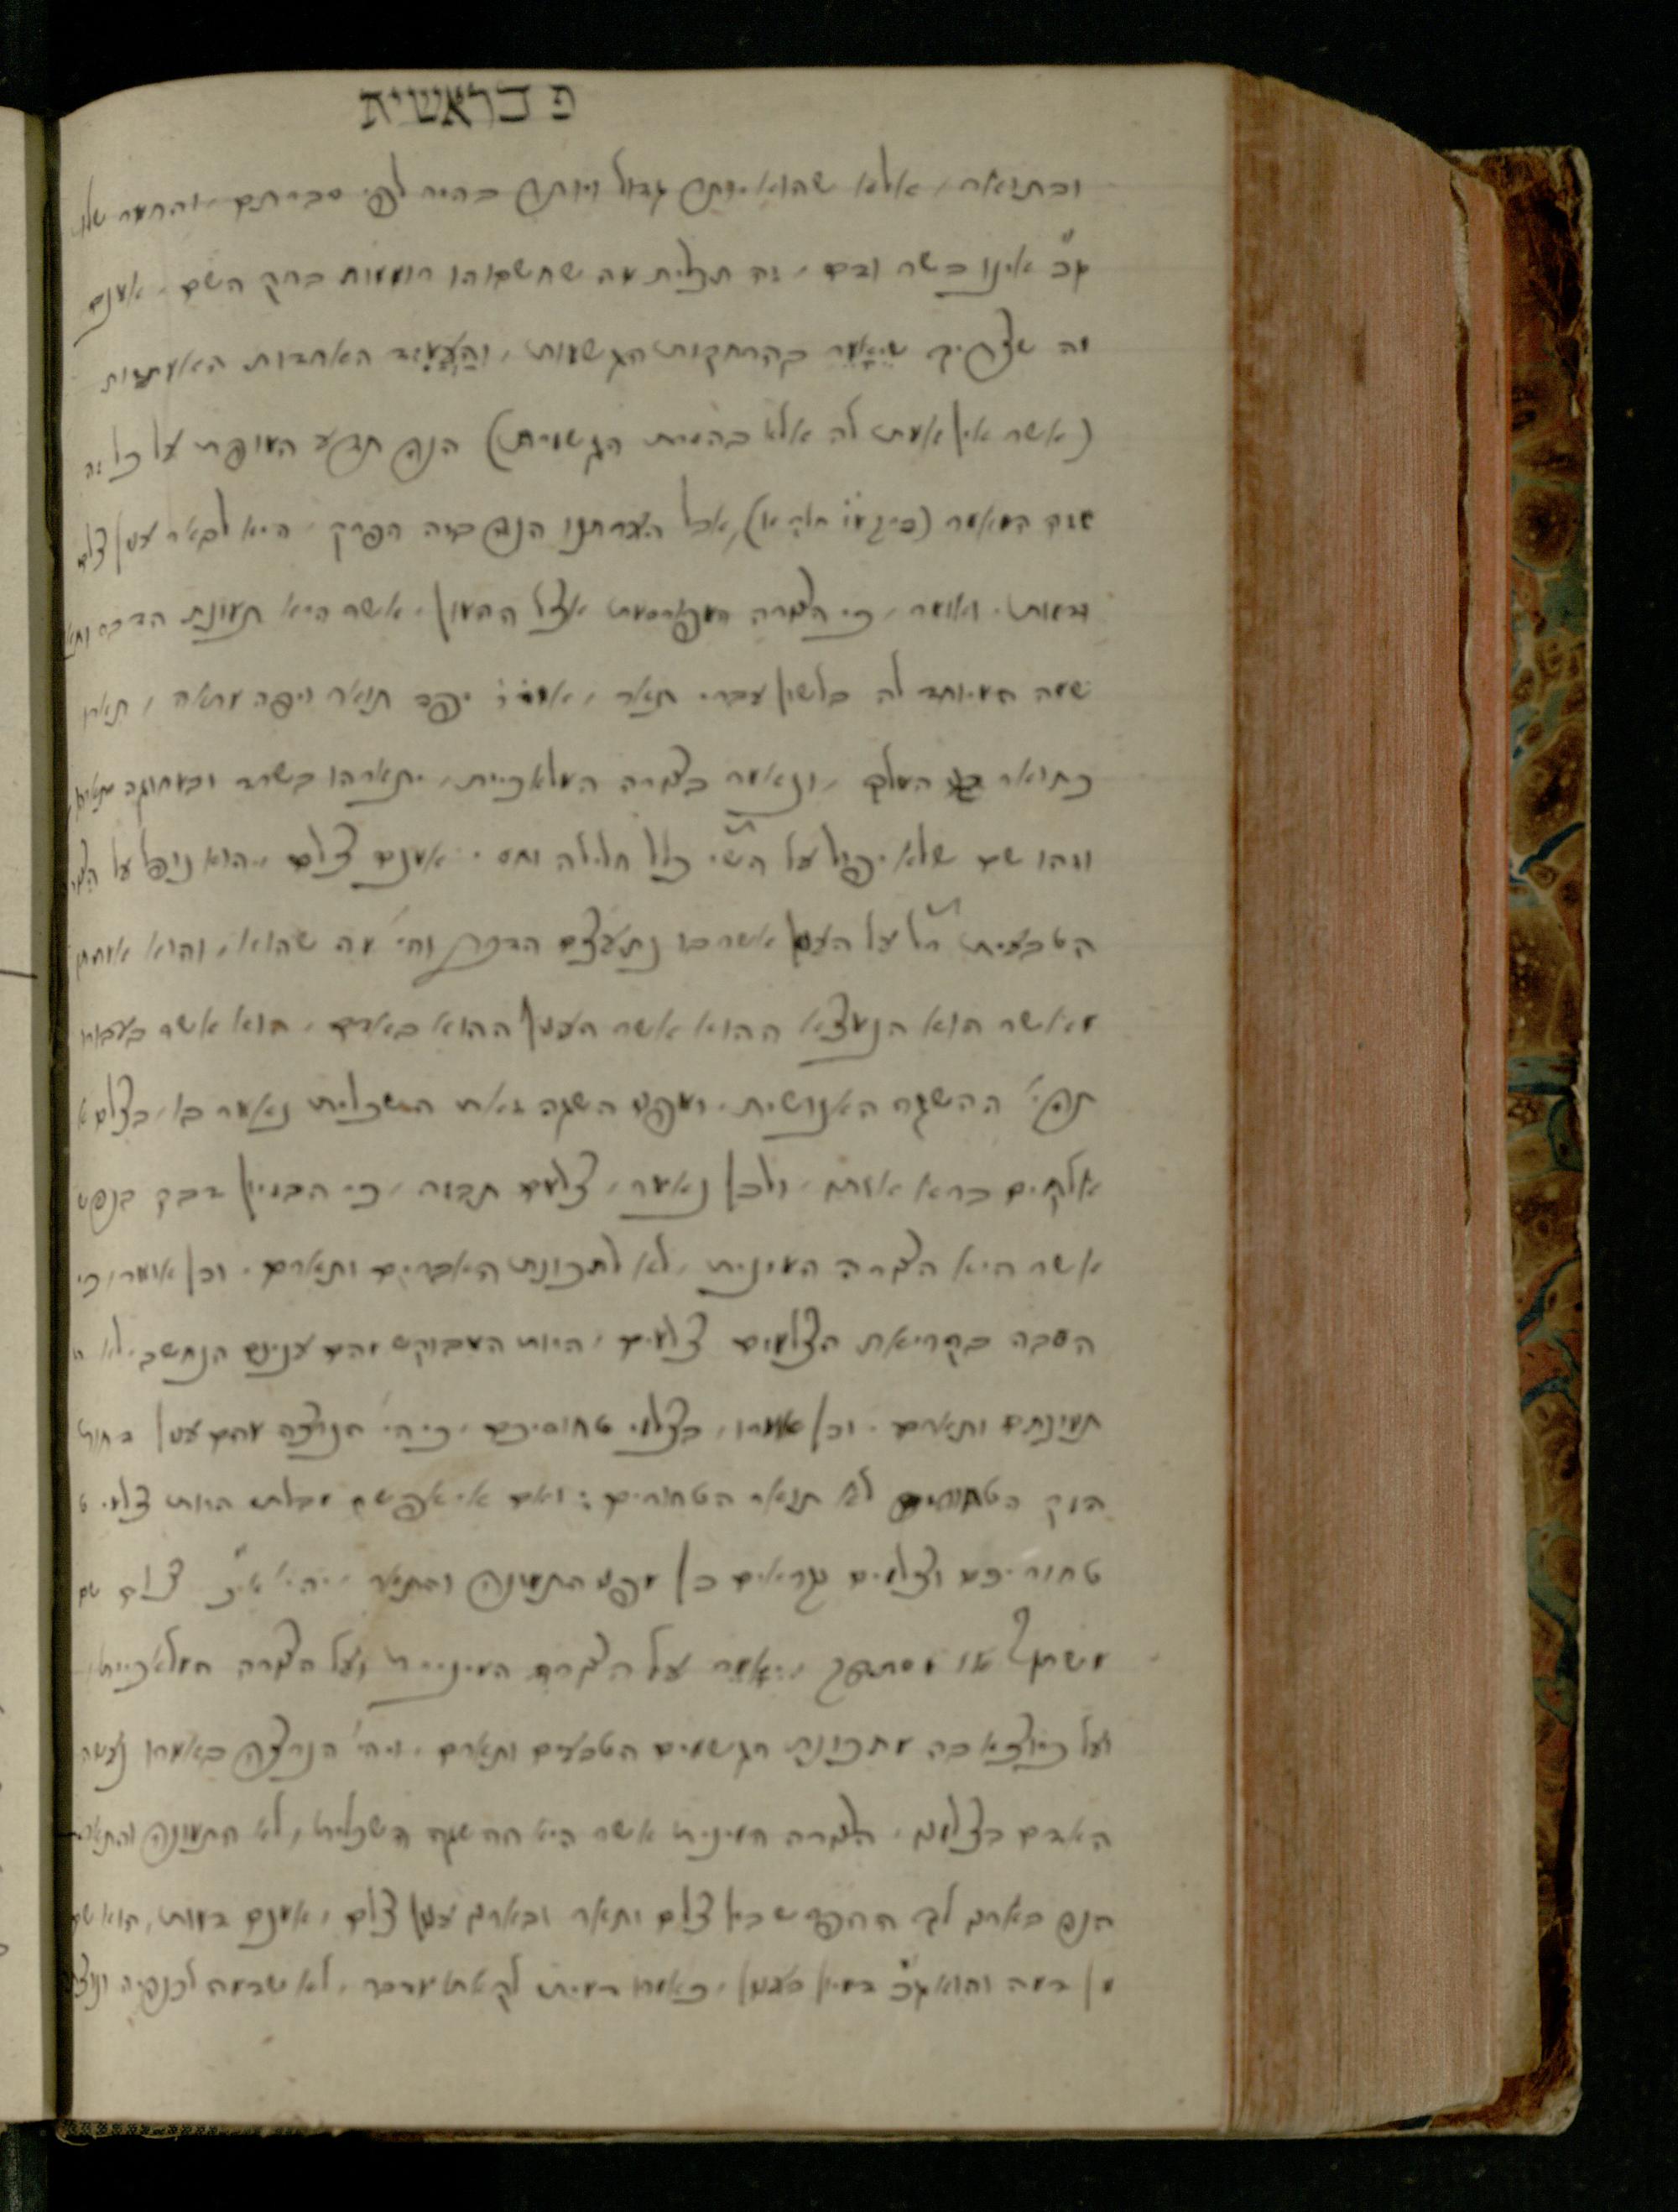 פ בראשית
ובתוארו, אלא שהוא יותר גדול ויותר בהיר לפי סברתם, והחמר שלו
ג״כ אינו בשר ודם, זה תכלית מה שחשבוהו רוממות בחק השם. אמנם
מה שצריך שיאמר בהרחקות הגשמות, והעמיד האחדות האמתית
(אשר אין אמת לה אלא בהסרת הגשמית) הנה תדע המופת על כל זה
מזה המאמר אבל הערתנו הנה בזה הפרק, היא לבאר ענין צלם
ודמות. ואומר, כי הצורה המפורסמת אצל ההמון, אשר היא תמונת הדבר ותא
שמה המיוחד לה בלשון עברי תאר, יפה תואר ויפה מראה, תארו
כתואר בני המלך, ונאמר בצורה המלאכיית, יתארהו בשרד ובמחוגה יתארהו
וזהו שם שלא יפול על הש״י כלל חלילה וחס. אמנם צלם, הוא נופל על הצורה
הטבעית ר״ל על הענין אשר בו נתעצם הדבר והי׳ מה שהוא, והוא אמתתו
מאשר הוא הנמצא ההוא אשר הענין ההוא באדם, הוא אשר בעבורו
תהי׳ ההשגה האנושית. ומפני השגה זאת השכלית נאמר בו, בצלם א
אלקים ברא אותו, ולכן נאמר, צלמם תבזה, כי הבזיון דבק בנפש
אשר היא הצורה המינית, לא לתכונת האברים ותארם. וכן אומר, כי
הסבה בקריאת הצלמים צלמים, היות המבוקש מהם ענינם הנחשב, לא ה
תמונתם ותארם. וכן אמרו, בצלמי טחוריכם, כי הי׳ הנרצה מהם ענין דחות
הזק הטחורים לא תואר הטחורים: ואם אי אפשר מבלתי היות צלמי ט
טחוריכם וצלמים נקראים כן מפני התמונה והתאר, יהי׳ א״כ צלם שם
משתף או מסופק, יאמר על הצורה המינית ועל הצורה המלאכיית
ועל כיוצא בה מתכונת הגשמים הטבעים ותארם. ויהי׳ הנרצה באמרו נעשה
האדם בצלמנו, הצורה המינית אשר היא ההשגה השכלית, לא התמונה והתאר
הנה בארנו לך ההפרש בין צלם ותאר ובארנו ענין צלם, אמנם דמות, הוא שם
מן דמה והוא ג״כ דמיון בענין, כאמרו דמיתי לקאת מדבר, לא שדמה לכנפיה ונוצתה